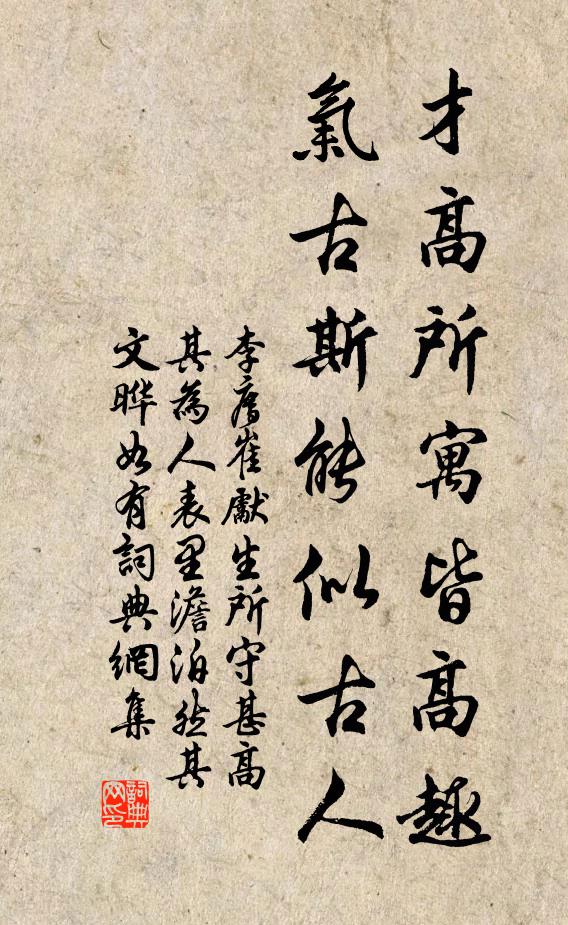 才高所寓皆高趣
氣古斯能似古人
李廌崔獻生所守甚高
其為人表里澹泊然其
文曄如有詞典網集
詞典网印